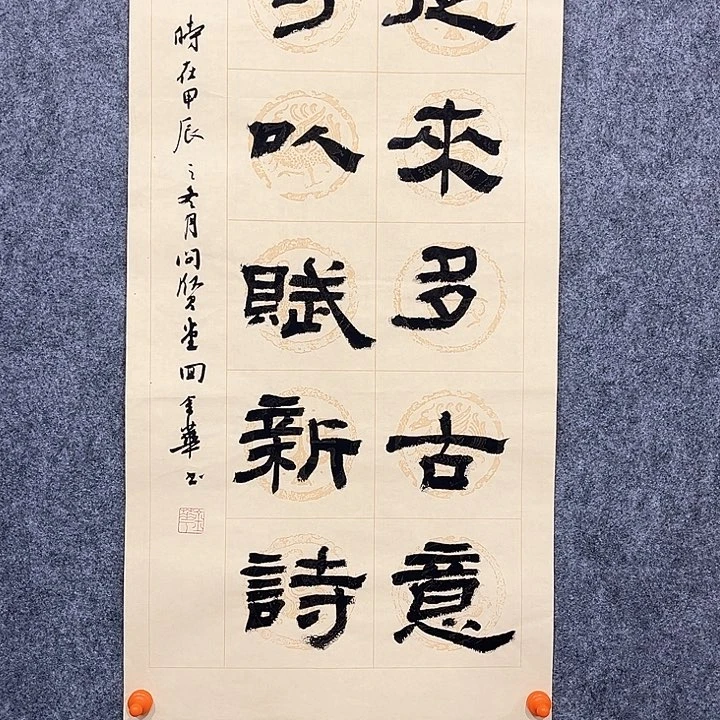 來多古意
以賦新詩
時在甲辰之冬月問賢堂金華書